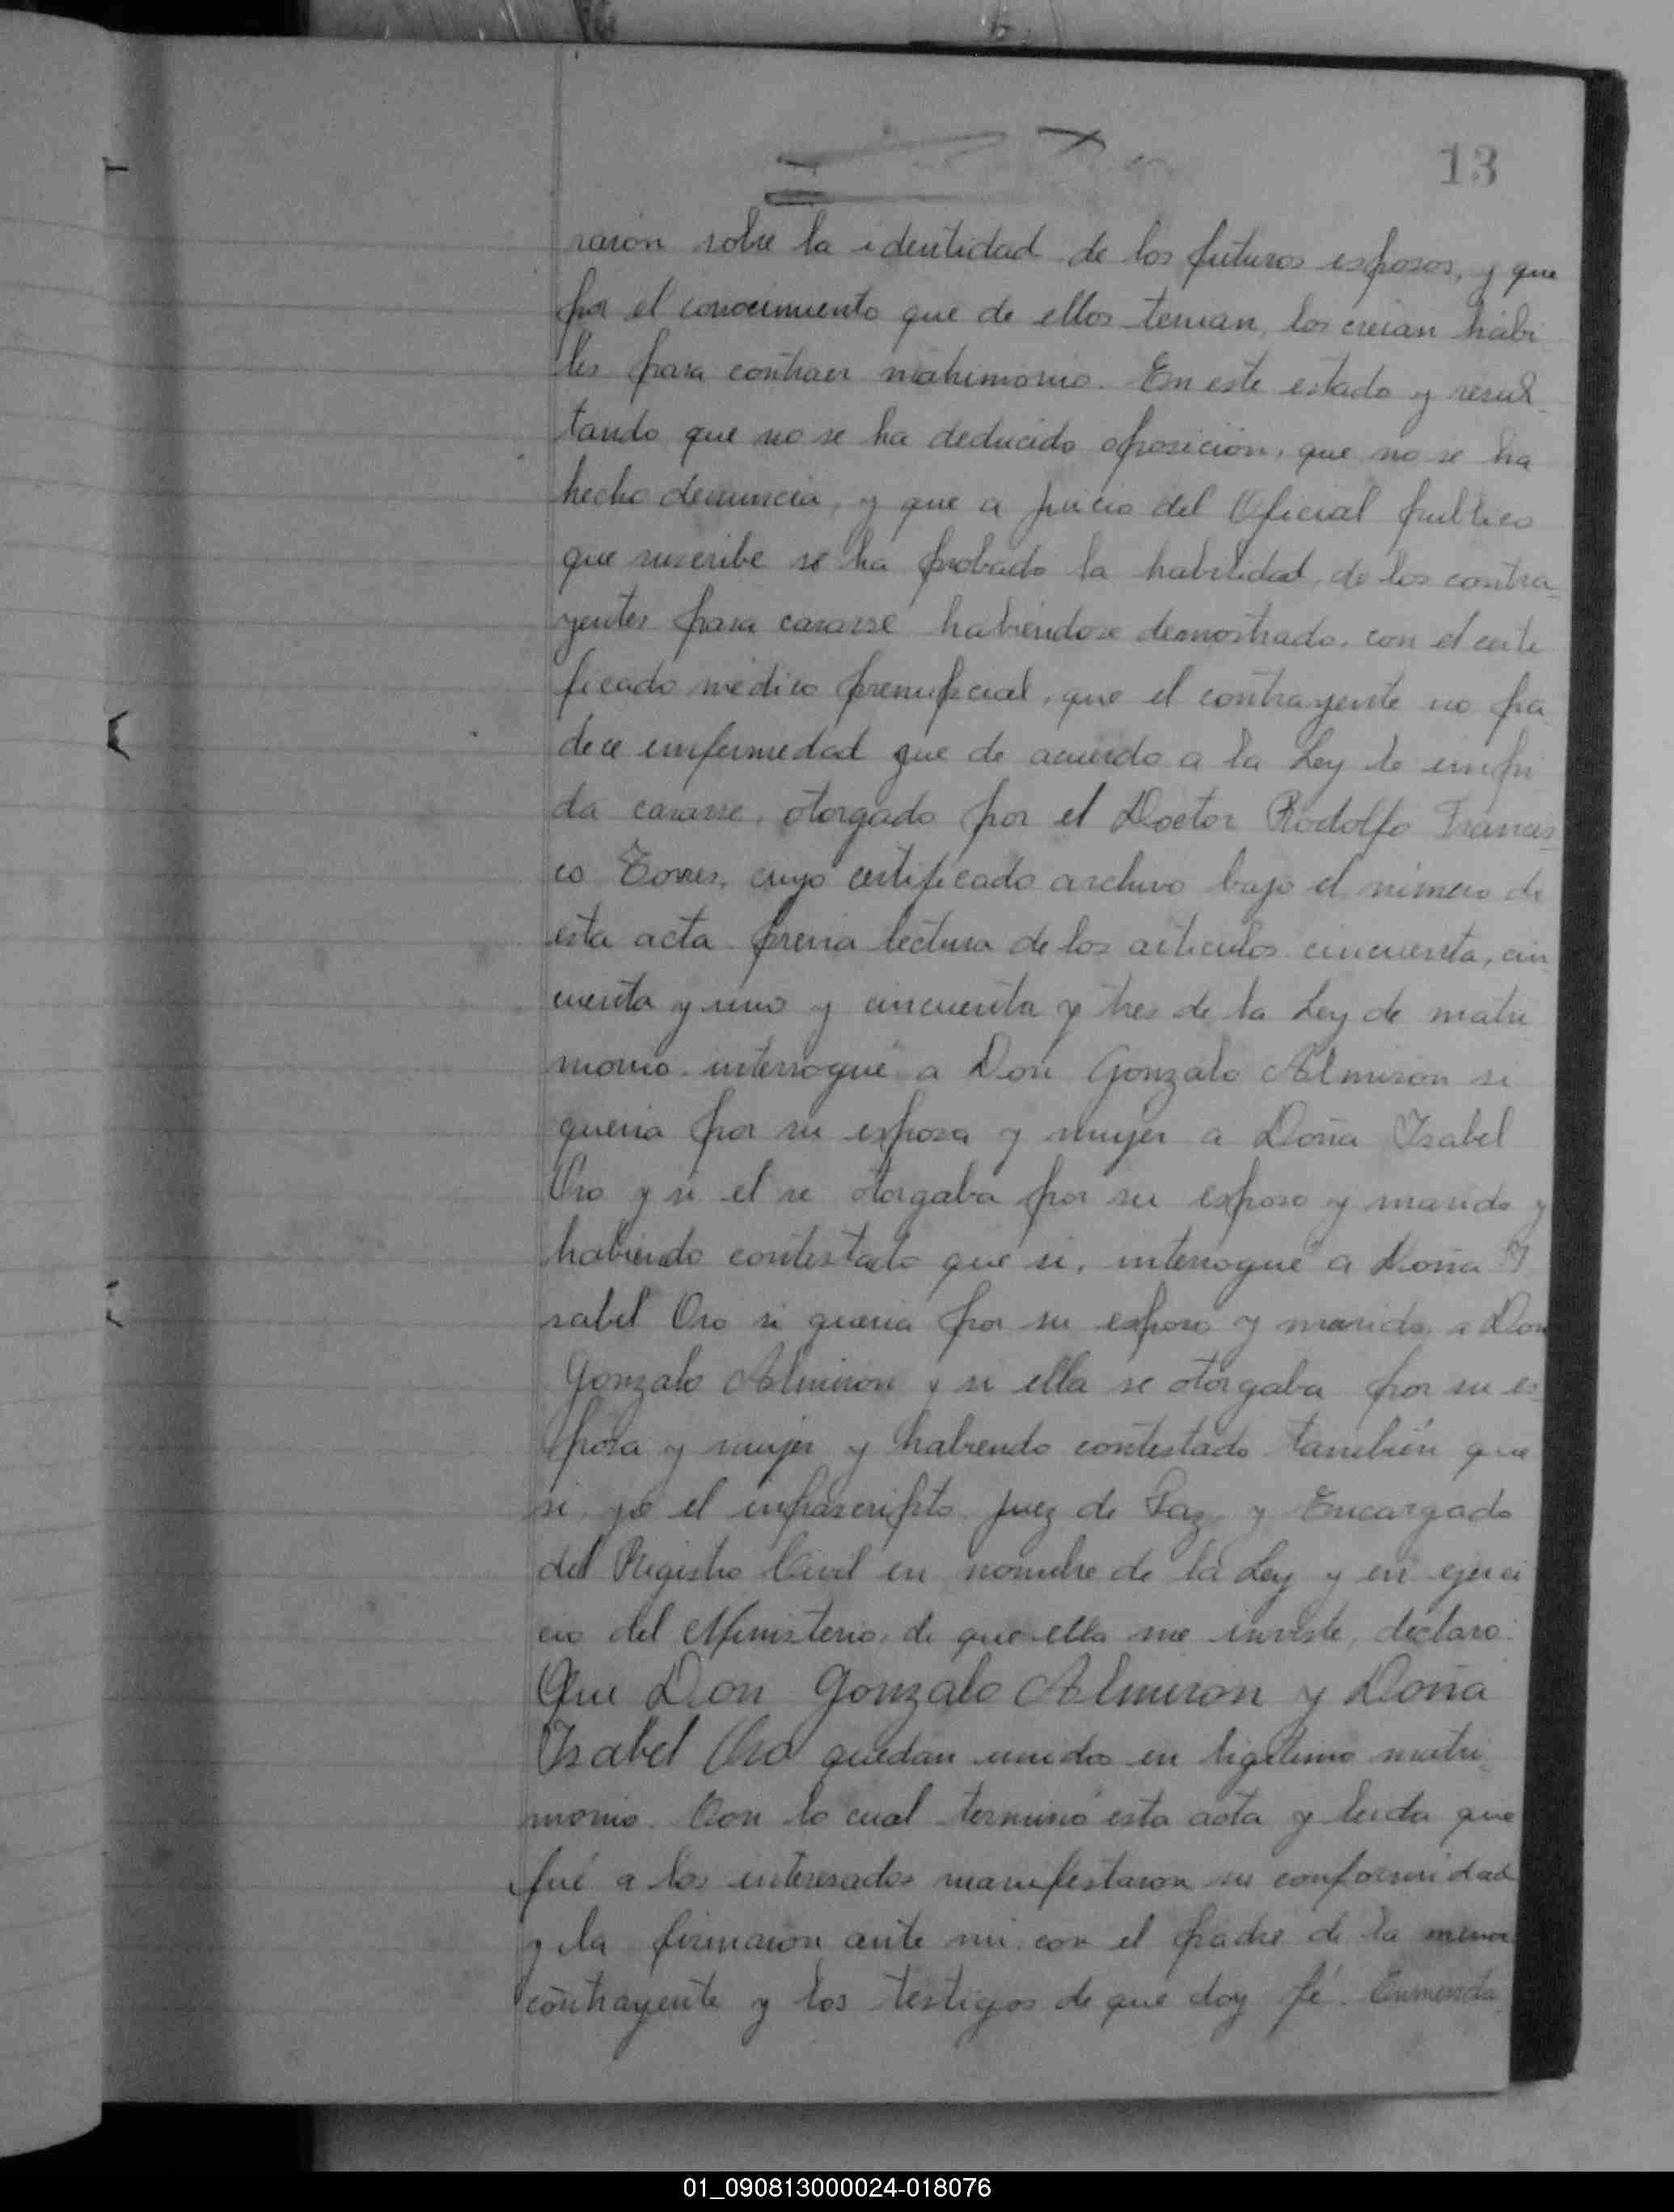 13
raron sobre la identidad de los futuros esposos, y que
por el conocimiento que de ellos tenian, los creian hábi
les para contraer matrimonio. En este estado y resul-
tando que no se ha deducido oposición, que no se ha
hecho denuncia, y que a juicio del Oficial publico
que suscribe se ha probado la habilidad de los contra-
yentes para casarse habiéndose demostrado, con el certi
ficado médico prenupcial, que el contrayente no pa
dece enfermedad que de acuerdo a la Ley le impi
da casarse, otorgado por el Doctor Rodolfo Francis-
co Torres, cuyo certificado archivo bajo el número de
esta acta previa lectura de los articulos cincuenta, cin
cuenta y uno y cincuenta y tres de la Ley de matri
monio interrogué a Don Gonzalo Almiron si
queria por su esposa y mujer a Doña Isabel
Oro y si el se otorgaba por su esposo y marido y
habiendo contestado que si, interrogué a Doña I
sabel Oro si queria por su esposo y marido a Don
Gonzalo Almiron y si ella se otorgaba por su es-
posa y mujer y habiendo contestado también que
si, yo el infrascripto Juez de Paz y Encargado
del Registro Civil en nombre de la Ley y en ejerci
cio del Ministerio de que ella me inviste, declaro:
Que Don Gonzalo Almiron y Doña
Isabel Oro quedan unidos en ligitimo matri-
monio. Con lo cual terminó esta acta y leida que
fué a los interesados manifestaron su conformidad
y la firmaron ante mi con el padre de la menor
contrayente y los testigos de que doy fé. Enmenda
01_090813000024-018076